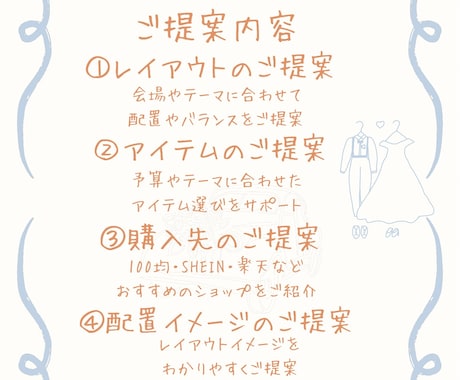 ご提案内容
①レイアウトのご提案
会場やテーマに合わせて
配置やバランスをご提案
②アイテムのご提案
予算やテーマに合わせた
アイテム選びをサポート
③購入先のご提案
100均・SHEIN・楽天など
おすすめのショップをご紹介
④配置イメージのご提案
レイアウトイメージを
わかりやすくご提案